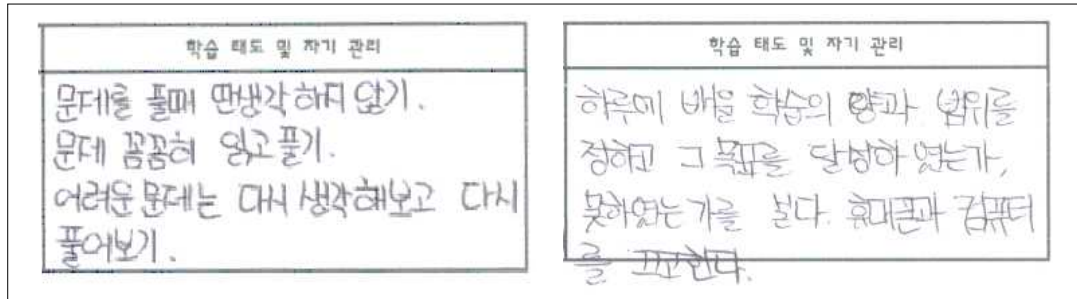 학습 태도 및 자기 관리
문제를 풀때 딴생각 하지 않기.
문제 꼼꼼히 읽고 풀기.
어려운 문제는 다시 생각해보고 다시
풀어보기.
학습 태도 및 자기 관리
하루에 배울 학습의 양과 범위를
정하고 그 목표를 달성하였는가,
못하였는가를 본다. 휴대폰과 컴퓨터
를 끄고한다.